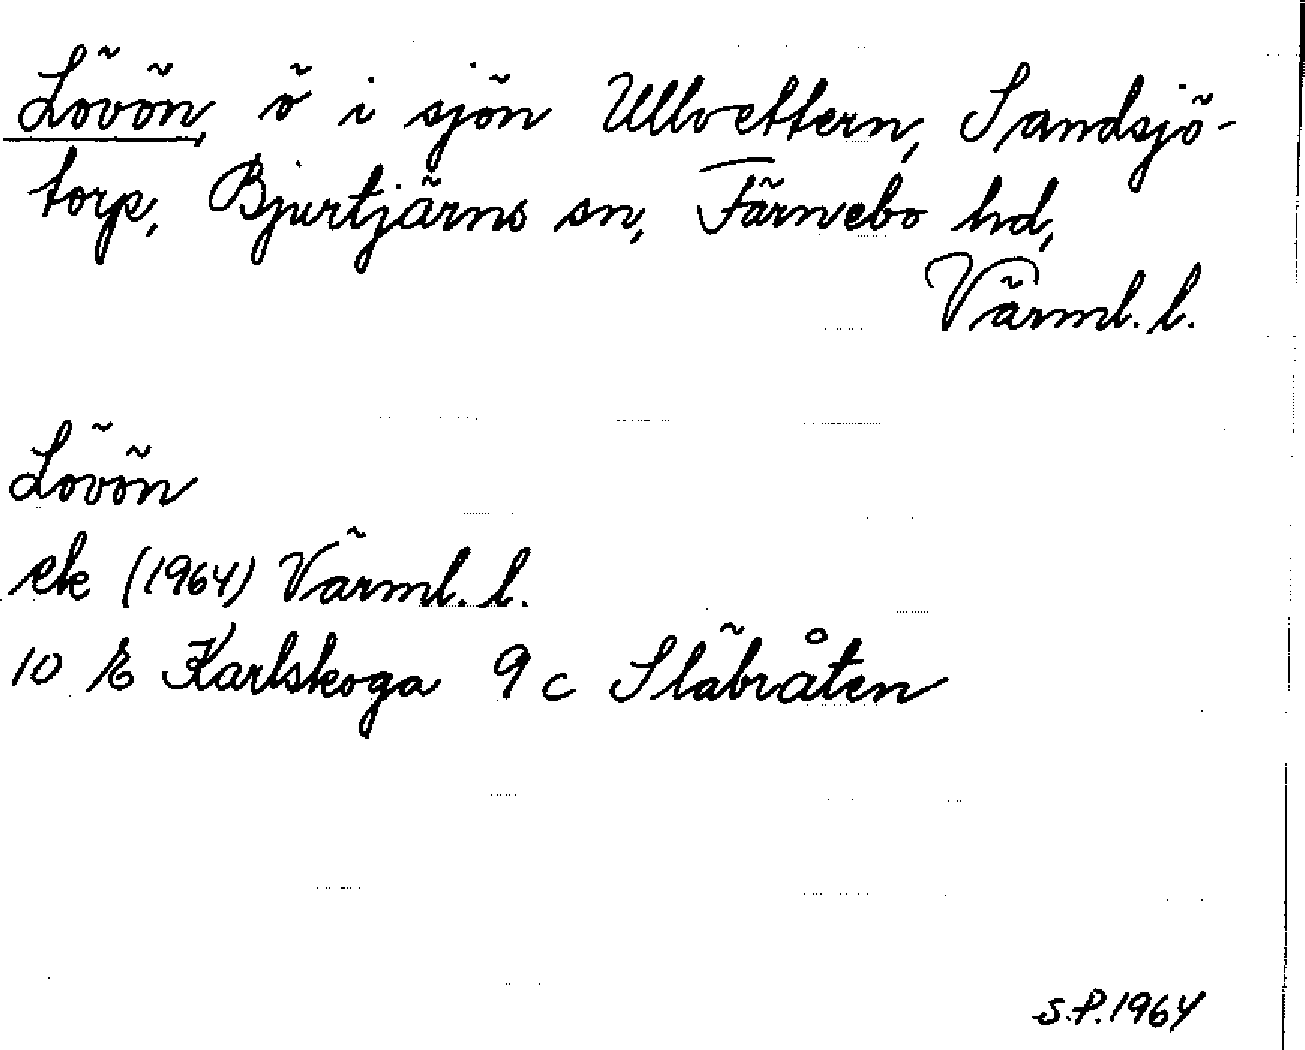 Lövön, ö i sjön Ullvettern, Sandsjö-
torp, Bjurtjärns sn, Färnebo hd,
Värml. l.
Lövön
ek (1964) Värml. l.
10 E Karlskoga 9 c Släbråten
S.P. 1964